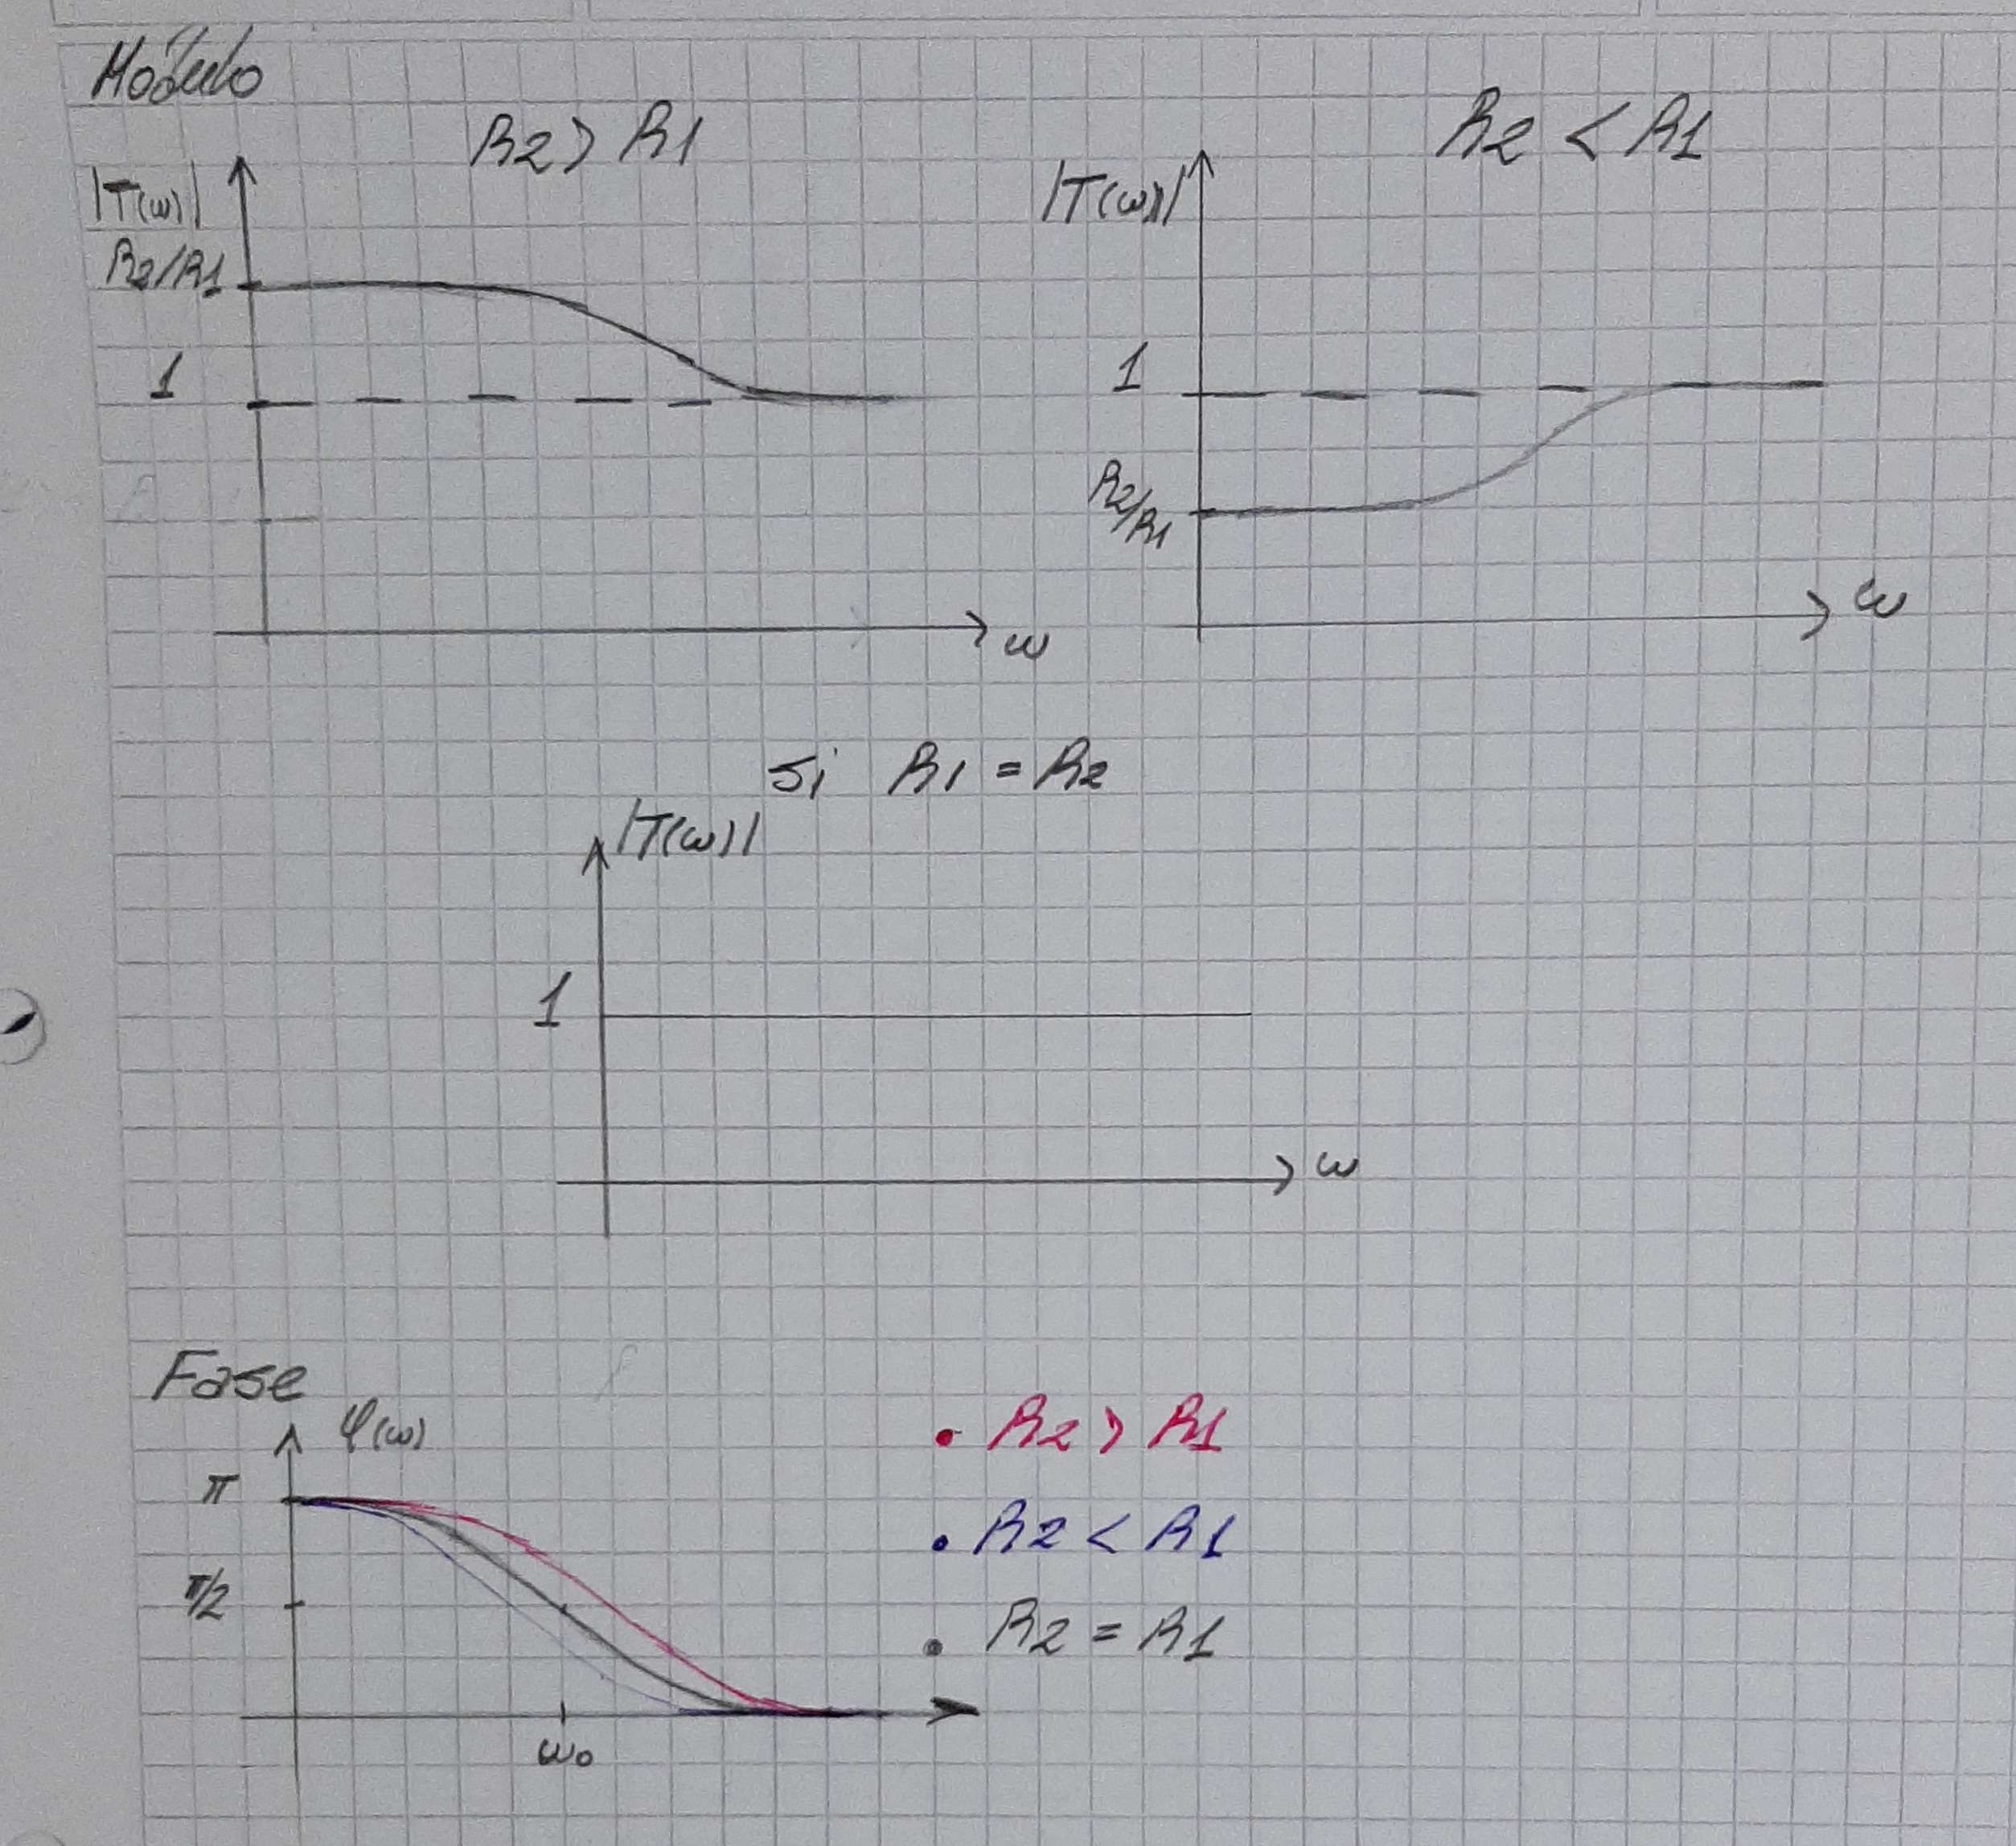 Módulo
R2 > R1
R2 < R1
|T(ω)|
R2/R1
1
ω
|T(ω)|
1
R2/R1
ω
si R1 = R2
|T(ω)|
1
ω
Fase
φ(ω)
π
π/2
ω0
• R2 > R1
• R2 < R1
• R2 = R1